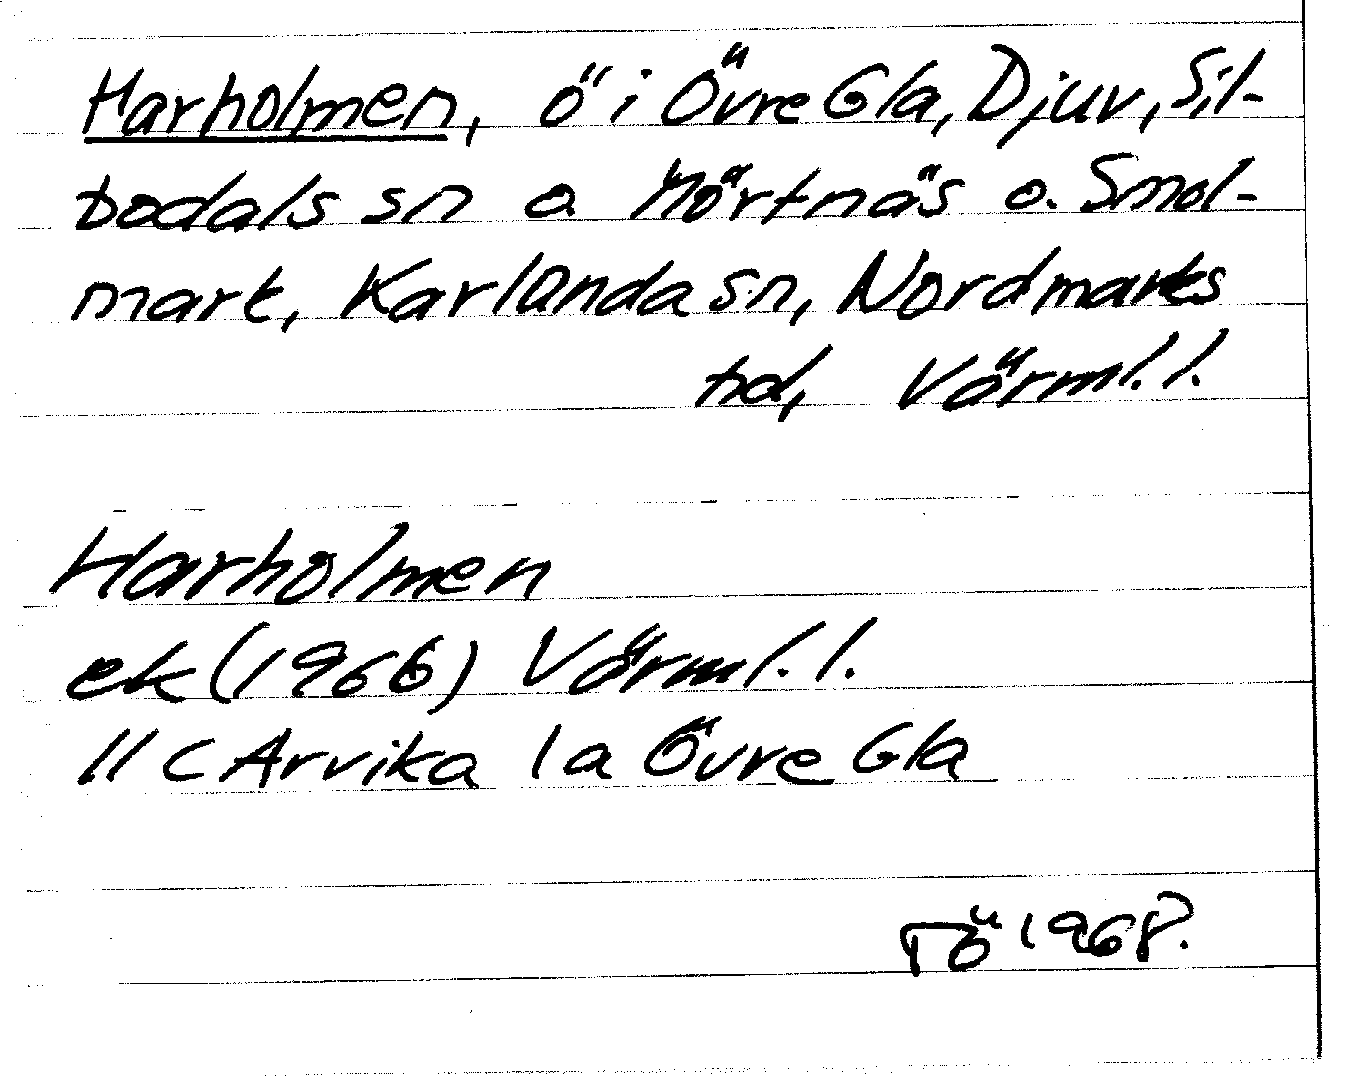 Harholmen, ö i Övre Gla, Djuv, Sil-
bodals sn o. Mörtnäs o. Smol-
mark, Karlanda sn, Nordmarks
hd, Värml. l.
Harholmen
ek (1966) Värml. l.
11 C Arvika 1 a Övre Gla
TÖ 1968.